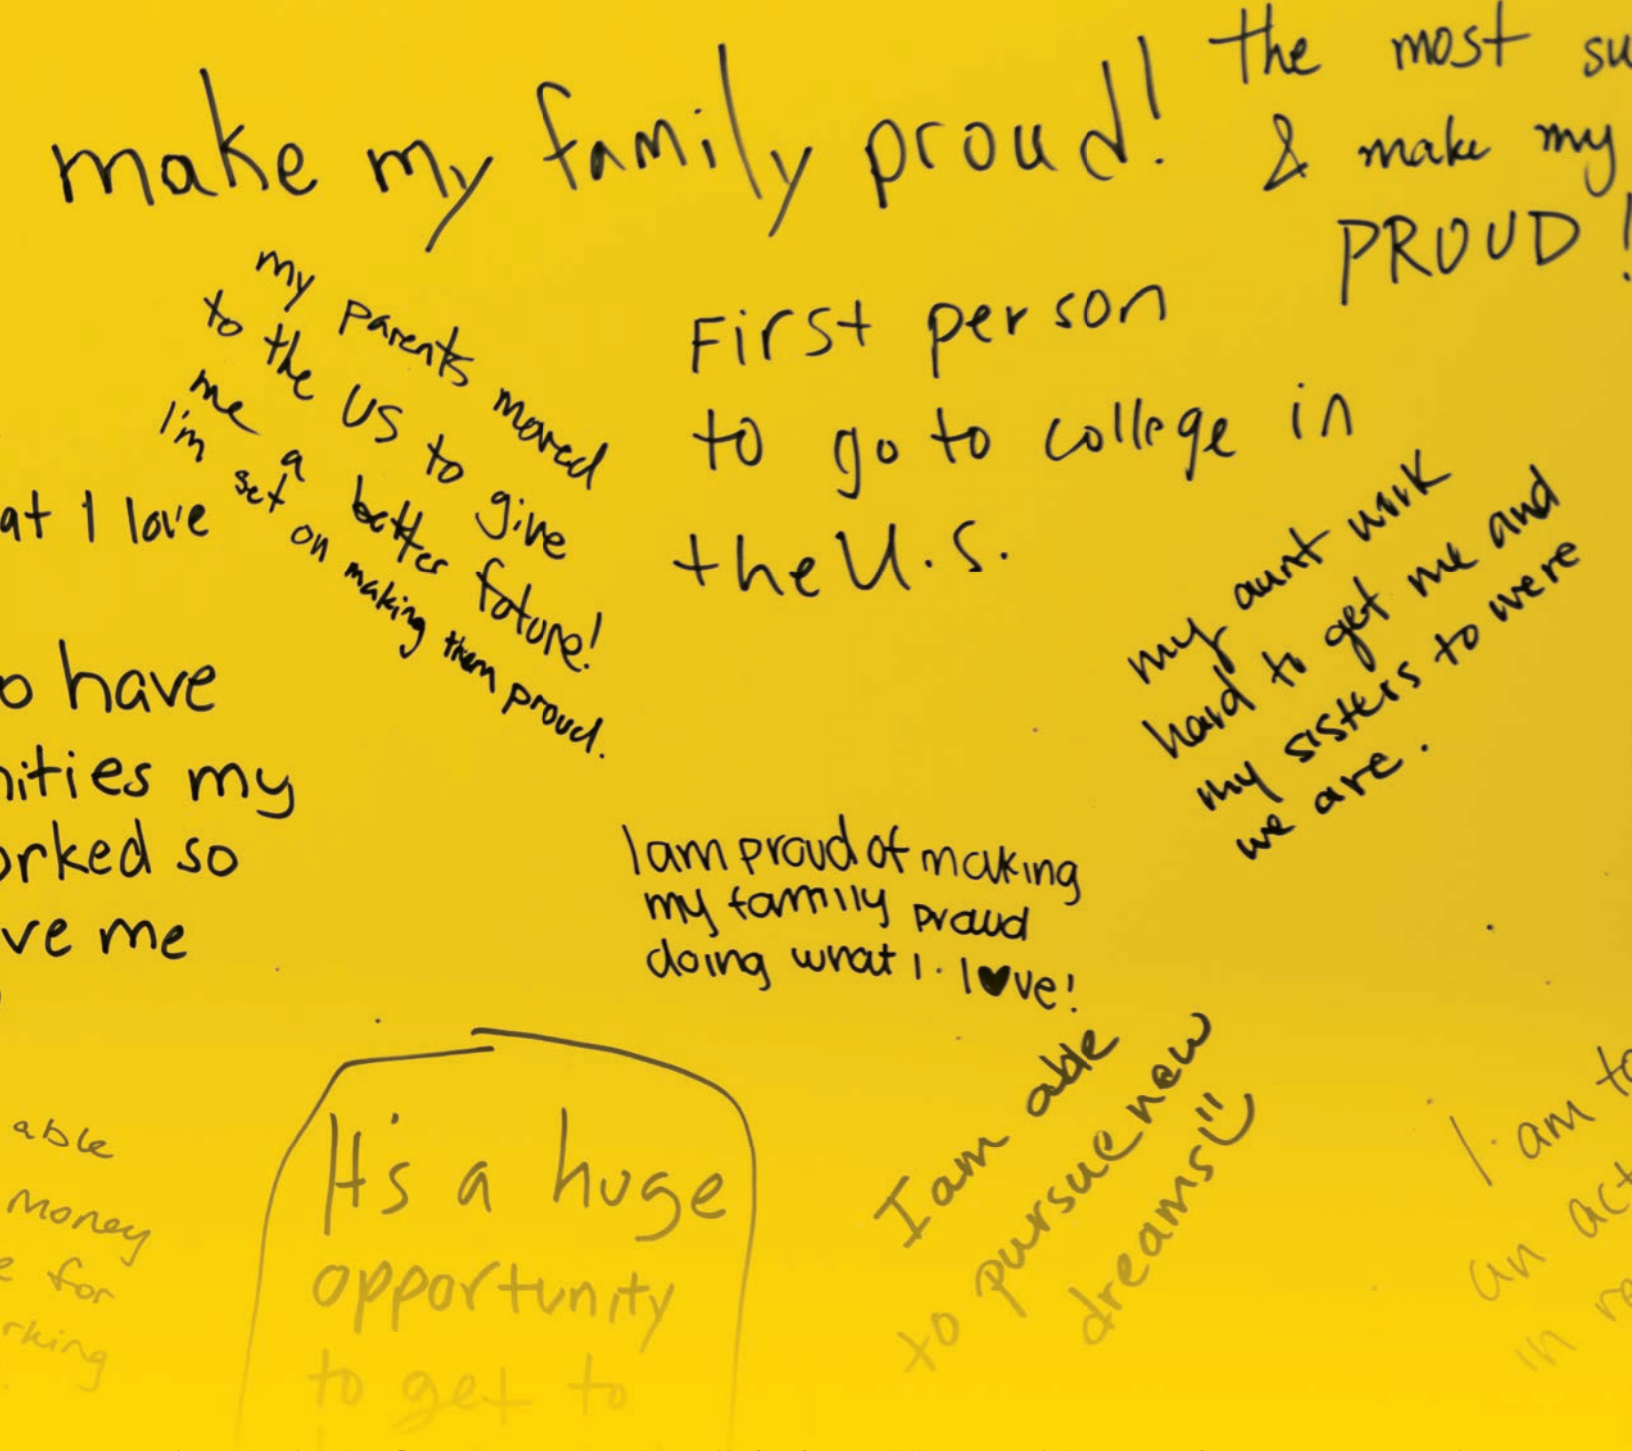 make my family proud!
the most su
& make my
PROUD!
my parents moved
to the US to give
me a better future!
I'm set on making them proud.
First person
to go to college in
the U.S.
at I love
my aunt work
hard to get me and
my sisters to were
we are.
o have
nities my
orked so
ve me
I am proud of making
my family proud
doing what I. l♥ve!
able
money
e for
rking
It's a huge
opportunity
to get to
I am able
to pursue new
dreams
I am to
an act
in re